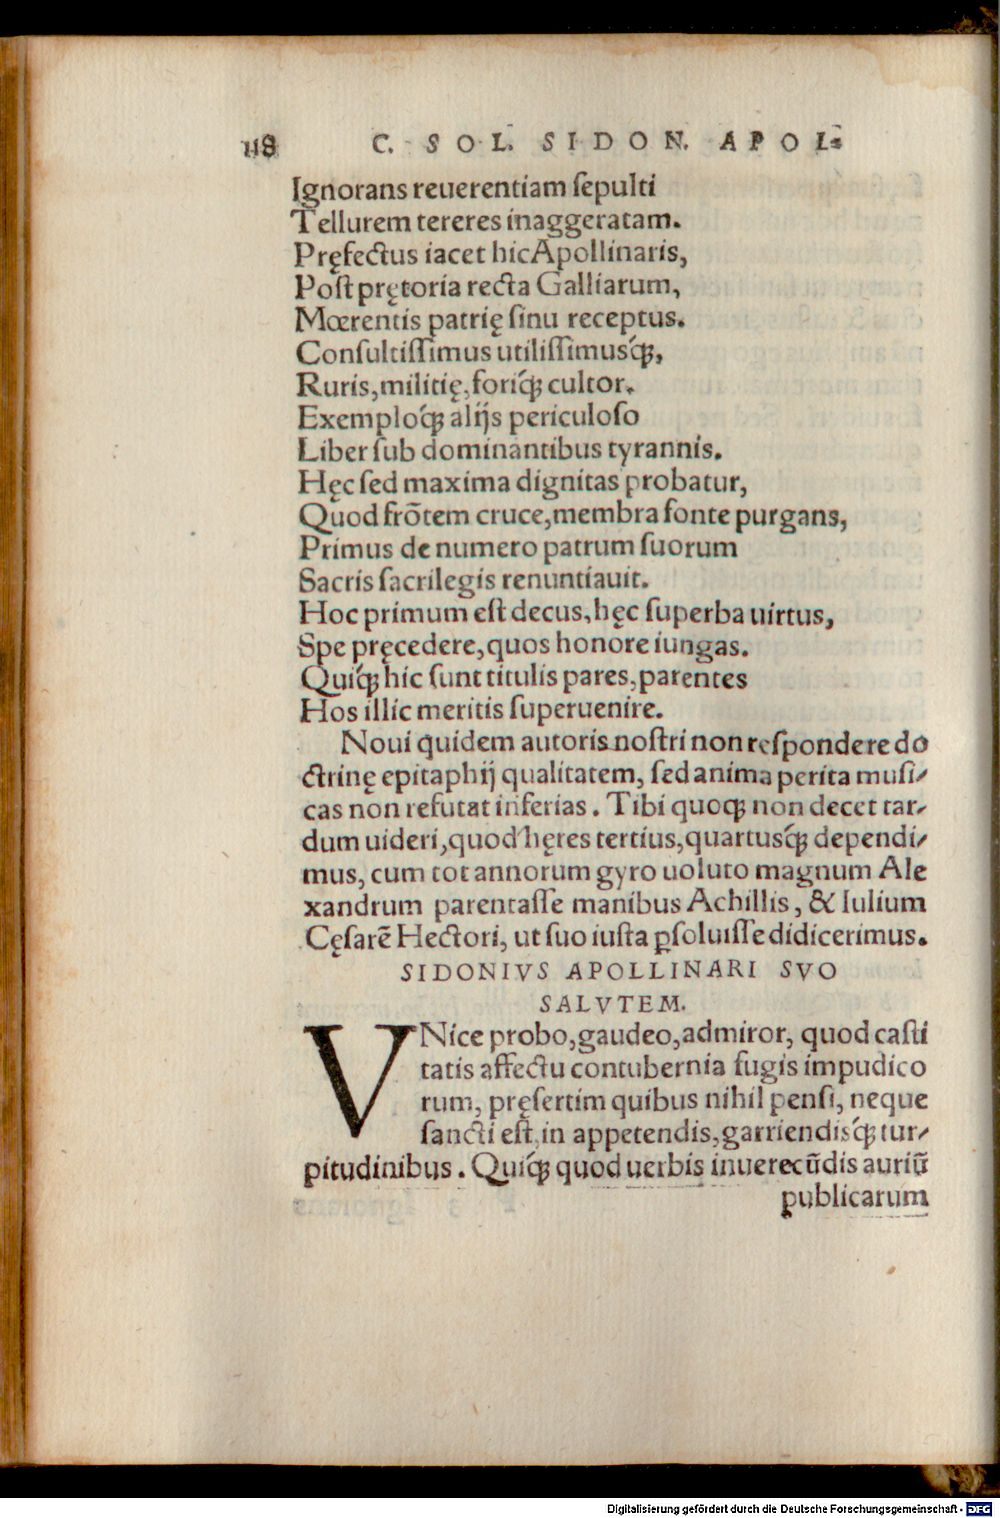 118 C. SOL. SIDON. APOL.
Ignorans reuerentiam ſepulti
Tellurem tereres inaggeratam.
Pręfectus iacet hic Apollinaris,
Poſt prętoria recta Galliarum,
Mœrentis patrię ſinu receptus.
Conſultiſſimus utiliſſimusq́ꝫ,
Ruris, militię, foriq́ꝫ cultor.
Exemploq́ꝫ alijs periculoſo
Liber ſub dominantibus tyrannis.
Hęc ſed maxima dignitas probatur,
Quod frōtem cruce, membra fonte purgans,
Primus de numero patrum ſuorum
Sacris ſacrilegis renuntiauit.
Hoc primum eſt decus, hęc ſuperba uirtus,
Spe pręcedere, quos honore iungas.
Quiq́ꝫ hic ſunt titulis pares, parentes
Hos illic meritis ſuperuenire.
Noui quidem autoris noſtri non reſpondere do
ctrinę epitaphij qualitatem, ſed anima perita muſi-
cas non refutat inferias. Tibi quoqꝫ non decet tar-
dum uideri, quod hęres tertius, quartusq́ꝫ dependi-
mus, cum tot annorum gyro uoluto magnum Ale
xandrum parentaſſe manibus Achillis, & Iulium
Cęſarē Hectori, ut ſuo iuſta ꝑſoluiſſe didicerimus.
SIDONIVS APOLLINARI SVO
SALVTEM.
VNice probo, gaudeo, admiror, quod caſti
tatis affectu contubernia fugis impudico
rum, pręſertim quibus nihil penſi, neque
ſancti eſt in appetendis, garriendisq́ꝫ tur-
pitudinibus. Quiq́ꝫ quod uerbis inuerecūdis auriū
publicarum
Digitalisierung gefördert durch die Deutsche Forschungsgemeinschaft - DFG